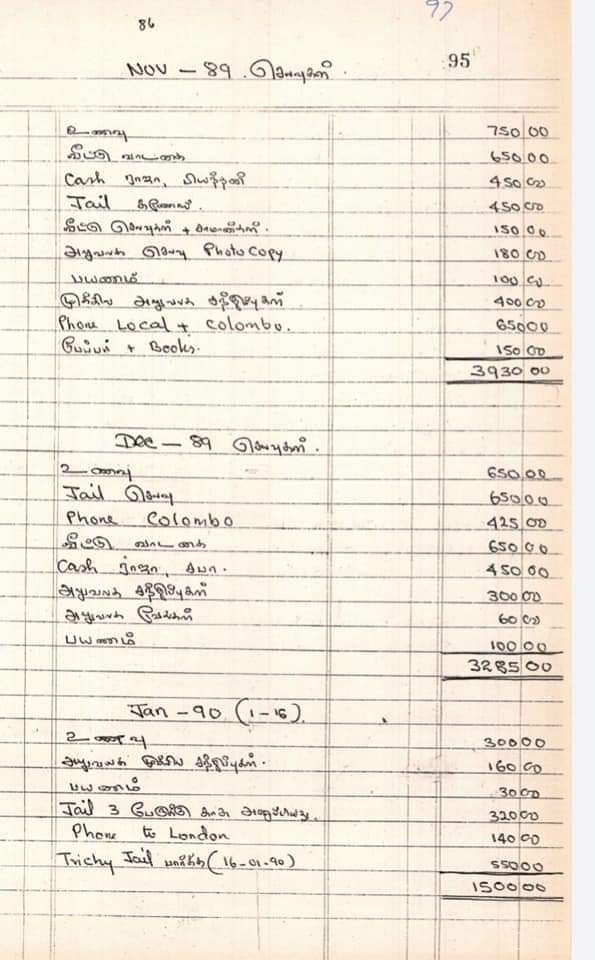 86
97
95
NOV - 89 செலவுகள்.
உணவு 750 00
வீட்டு வாடகை 650 00
Cash ராஜா, 450 00
Jail 450 00
வீட்டு செலவுகள் + சாமான்கள். 150 00
அலுவலக செலவு Photo Copy 180 00
பயணம் 100 00
முக்கிய அலுவலக சந்திப்புகள் 400 00
Phone Local + Colombo. 650 00
பேப்பர் + Books. 150 00
3930 00
Dec - 89 செலவுகள்.
உணவு 650 00
Jail செலவு 650 00
Phone Colombo 425 00
வீட்டு வாடகை 650 00
Cash ராஜா, சபா. 450 00
அலுவலக சந்திப்புகள் 300 00
அலுவலக 60 00
பயணம் 100 00
3285 00
Jan - 90 (1-16)
உணவு 300 00
அலுவலக முக்கிய சந்திப்புகள். 160 00
பயணம் 30 00
Jail 3 பேருக்கு காசு அனுப்பியது. 320 00
Phone to London 140 00
Trichy Jail பார்க்க (16-01-90) 550 00
1500 00